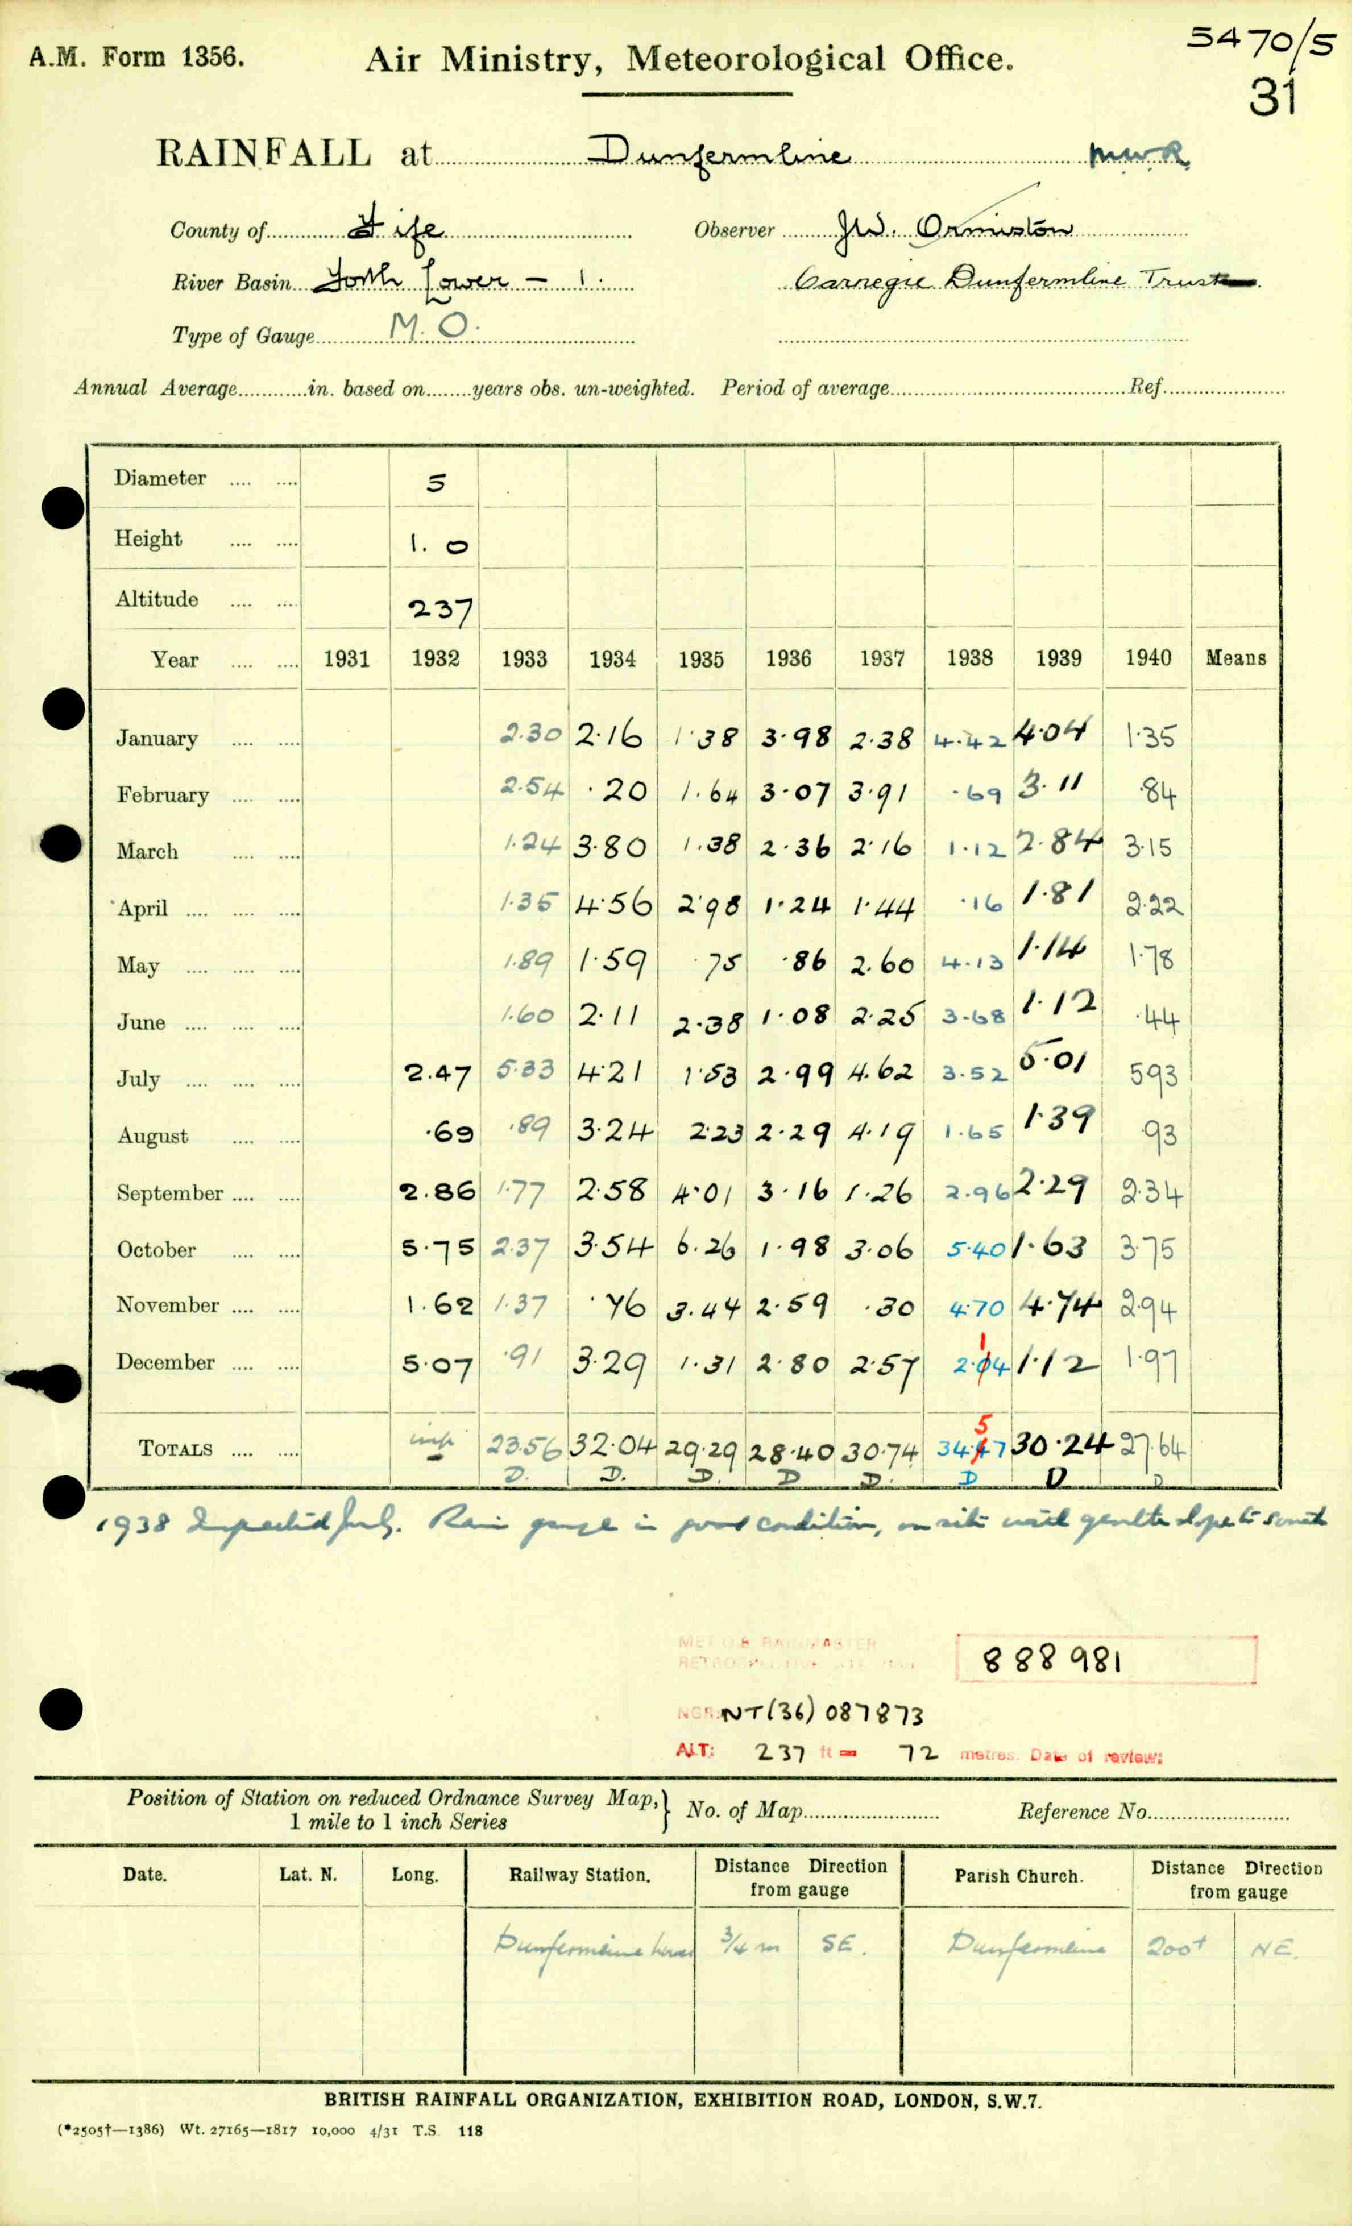 A.M. Form 1356.
Air Ministry, Meteorological Office.
5470/5
31
RAINFALL at Dunfermline M.W.R.
County of Fife Observer J.W. Ormiston
River Basin Forth Lower – 1. Carnegie Dunfermline Trust
Type of Gauge M.O.
Annual Average in. based on years obs. un-weighted. Period of average Ref.
Diameter 5
Height 1.0
Altitude 237
Year 1931 1932 1933 1934 1935 1936 1937 1938 1939 1940 Means
January 2.30 2.16 1.38 3.98 2.38 4.42 4.04 1.35
February 2.54 .20 1.64 3.07 3.91 .69 3.11 .84
March 1.24 3.80 1.38 2.36 2.16 1.12 2.84 3.15
April 1.35 4.56 2.98 1.24 1.44 .16 1.81 2.22
May 1.89 1.59 .75 .86 2.60 4.13 1.14 1.78
June 1.60 2.11 2.38 1.08 2.25 3.68 1.12 .44
July 2.47 5.33 4.21 1.53 2.99 4.62 3.52 5.01 5.93
August .69 .89 3.24 2.23 2.29 4.19 1.65 1.39 .93
September 2.86 1.77 2.58 4.01 3.16 1.26 2.96 2.29 2.34
October 5.75 2.37 3.54 6.26 1.98 3.06 5.40 1.63 3.75
November 1.62 1.37 .76 3.44 2.59 .30 4.70 4.74 2.94
1
December 5.07 .91 3.29 1.31 2.80 2.57 2.04 1.12 1.97
5
TOTALS imp 23.56 32.04 29.29 28.40 30.74 34.47 30.24 27.64
D. D. D. D D. D D D
1938 Inspected July. Rain gauge in good condition, on site with gentle slope to south
MET O.8 RAINMASTER
888981
NGR: NT(36) 087873
ALT: 237 ft = 72 metres. Date of review:
Position of Station on reduced Ordnance Survey Map,
1 mile to 1 inch Series
No. of Map Reference No.
Date. Lat. N. Long. Railway Station. Distance Direction from gauge Parish Church. Distance Direction from gauge
Dunfermline Lower 3/4 m SE. Dunfermline 200+ NE.
BRITISH RAINFALL ORGANIZATION, EXHIBITION ROAD, LONDON, S.W.7.
(*2505†—1386) Wt. 27165—1817 10,000 4/31 T.S. 118